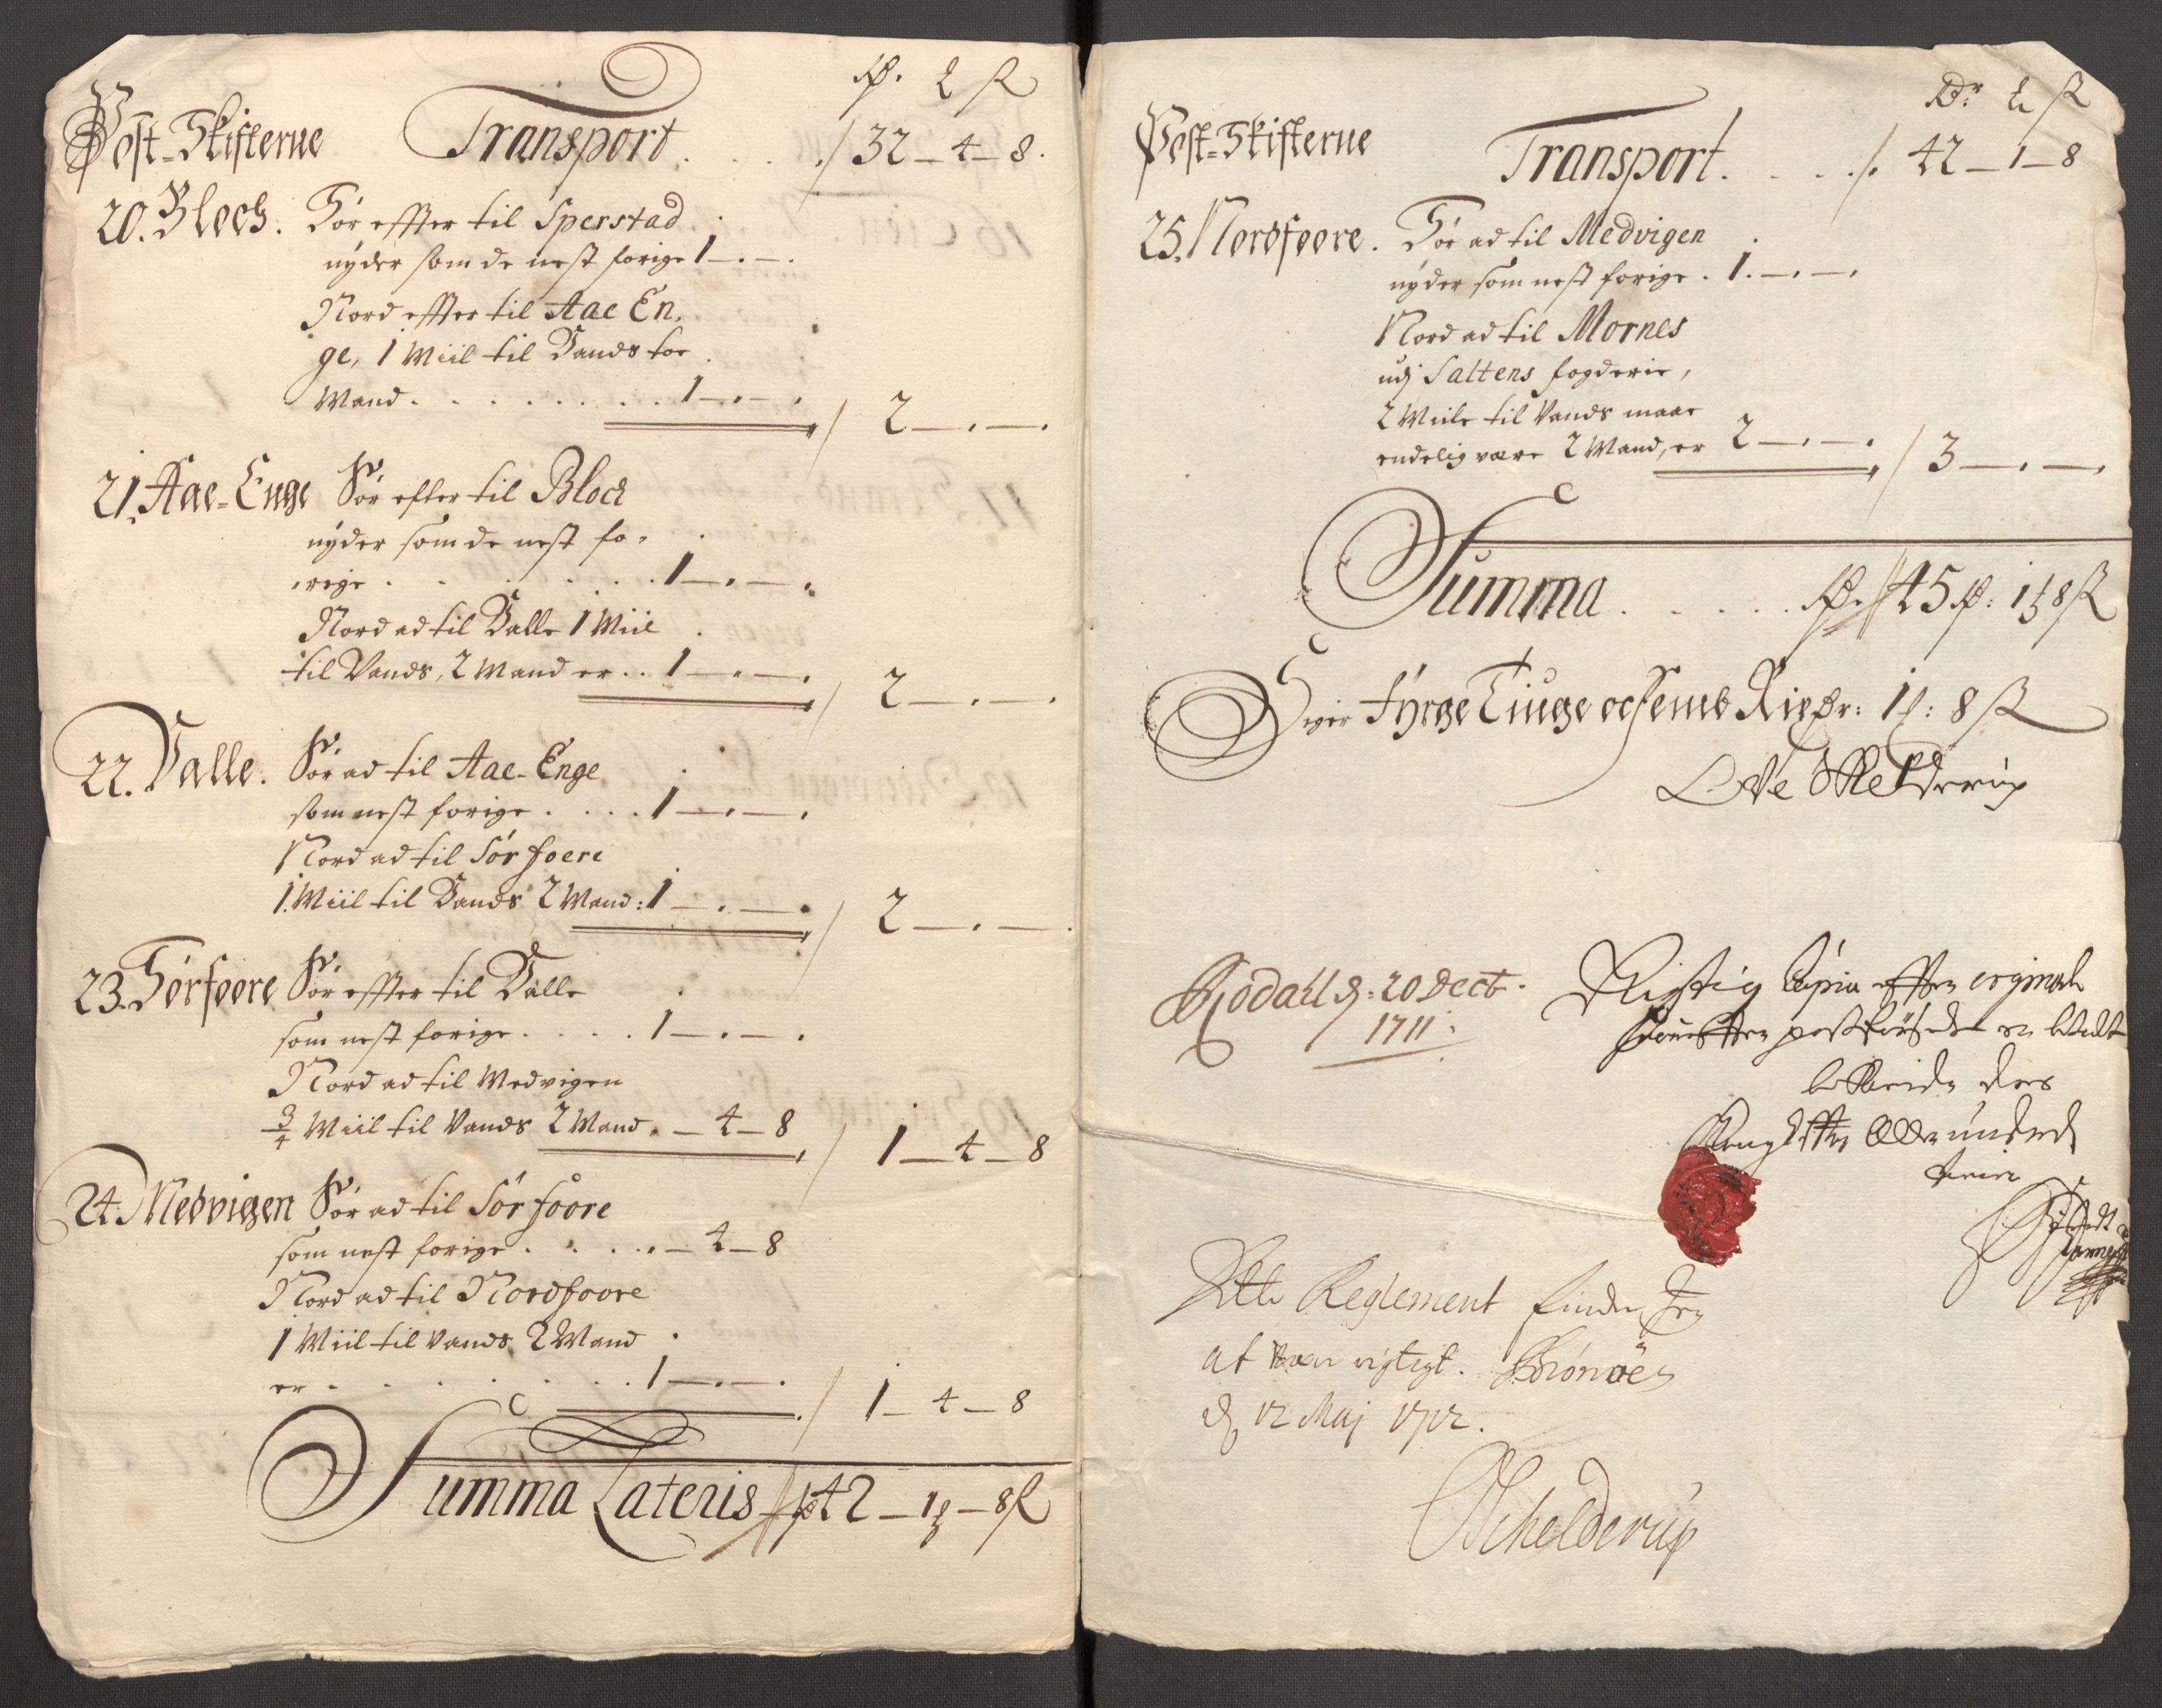 Rd. ß
Post-Skifterne Transport . . . . ./ 32 – 4 – 8.
20. Bloch. Sør effter til Sperstad
nyder som de nest forige 1 – . – .
Nord effter til Aae En-
ge, 1 Miil til Vands toe
Mand . . . . . . . . 1 – . – .
/ 2 – . – .
21. Aae-Enge Sør efter til Block
nyder som de nest fo-
rige . . . . . . . 1 – . – .
Nord ad til Valle 1 Miil
til Vands, 2 Mand er . . 1 – . – .
/ 2 – . – .
22. Valle. Sør ad til Aae-Enge
som nest forige . . . . 1 – . – .
Nord ad til Sørfoere
1. Miil til Vands 2 Mand: 1 – . – .
/ 2 – . – .
23. Sørfoere Sør effter til Valle
som nest forige . . . . 1 – . – .
Nord ad til Medvigen
3/4 Miil til Vands 2 Mand . – 4 – 8
/ 1 – 4 – 8
24. Medvigen Sør ad til Sørfoore
som nest forige . . . . . – 4 – 8
Nord ad til Nordfoore
1 Miil til Vands 2 Mand
er . . . . . . . . 1 – . – .
/ 1 – 4 – 8
Summa Lateris 42 – 1 – 8 ß
Rdr ß
Post-Skifterne Transport . . . ./. 42 – 1 – 8
25. Nordfoore. Sør ad til Medvigen
nyder som nest forige . 1. – . – .
Nord ad til Mornes
udj Saltens fogderie,
2 Miile til Vands maae
endelig være 2 Mand, er 2 – . – .
/ 3 – . – .
Summa . . . . . 45 : 1 8 ß
Siger Fyrge Tiuge oc femb Rixdr: 1 : 8 ß
Ove Schelderup
Rødall d: 20 Decb.
1711.
Rigtig Copia effter orginale
er betalt
Dette Reglement finder Jeg
at være rigtigt. Brønøe
d 12 Maj 1712.
OSchelderup